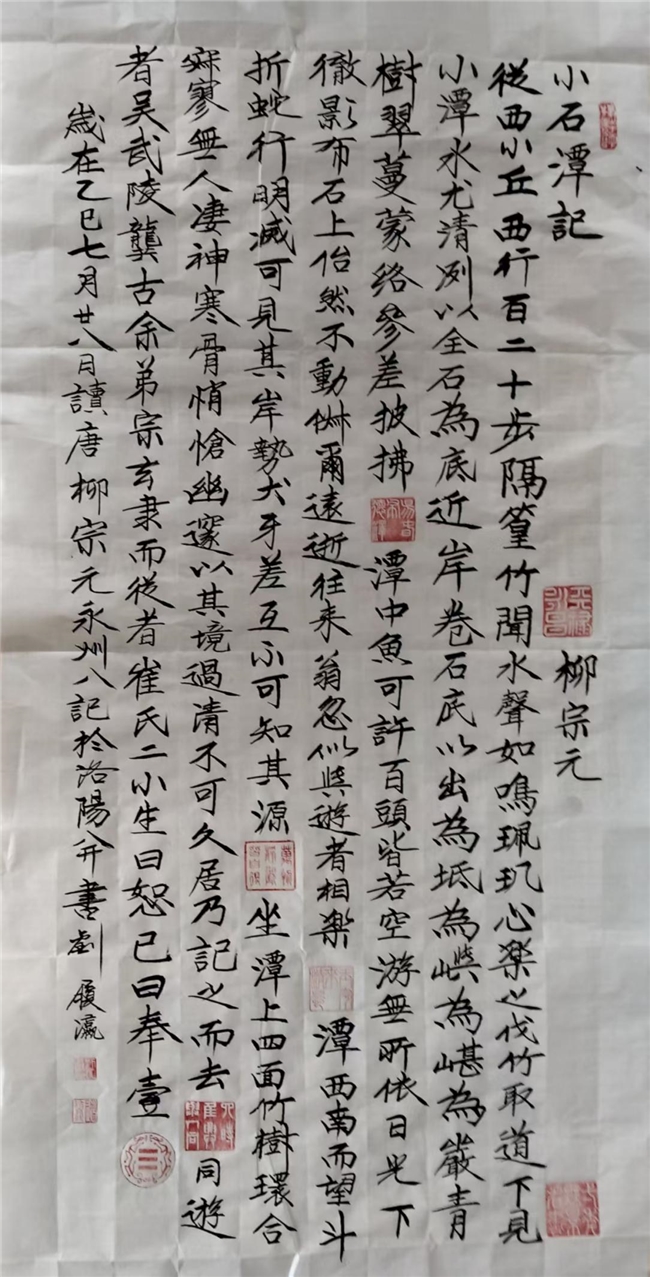 小石潭記 柳宗元
從西小丘西行百二十步隔篁竹聞水聲如鳴珮玑心樂之伐竹取道下見
小潭水尤清冽以全石為底近岸卷石底以出為坻為嶼為嵁為巖青
樹翠蔓蒙络參差披拂 潭中魚可許百頭皆若空游無所依日光下
徹影布石上佁然不動俶爾遠逝往来翕忽似與遊者相樂 潭西南而望斗
折蛇行明滅可見其岸勢犬牙差互不可知其源 坐潭上四面竹樹環合
寂寥無人凄神寒骨悄愴幽邃以其境過清不可久居乃記之而去 同遊
者吴武陵龔古余弟宗玄隶而從者崔氏二小生曰恕己曰奉壹
歲在乙巳七月廿八日讀唐柳宗元永州八記於洛陽并書劉